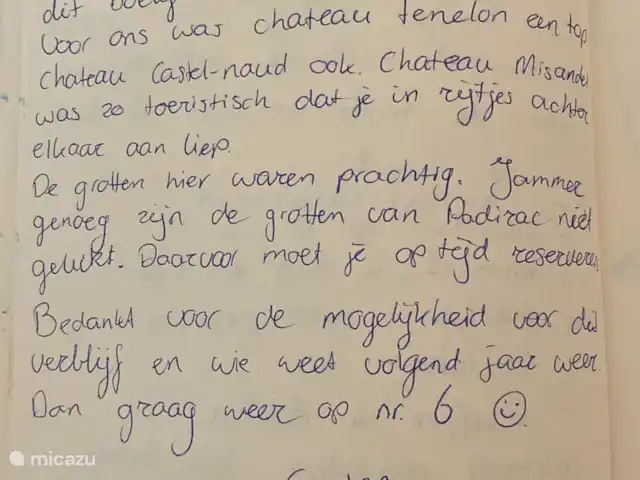 dit
Voor ons was chateau fenelon een top
chateau Castel-naud ook. Chateau Misandel
was zo toeristisch dat je in rijtjes achter
elkaar aan liep.
De grotten hier waren prachtig. Jammer
genoeg zijn de grotten van Padirac niet
gelukt. Daarvoor moet je op tijd reserveren
Bedankt voor de mogelijkheid voor dit
verblijf en wie weet volgend jaar weer.
Dan graag weer op nr. 6
micazu